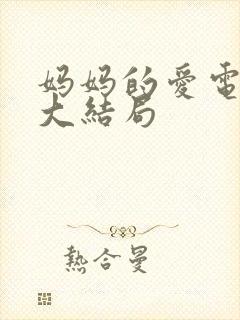 妈妈的爱電
大結局
熱合曼